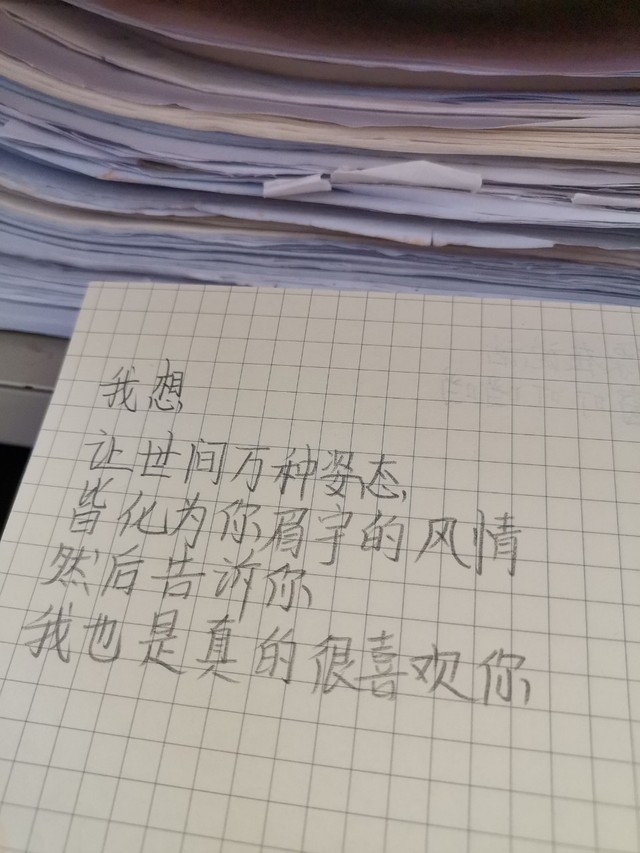 我想
让世间万种姿态,
皆化为你眉宇的风情
然后告诉你
我也是真的很喜欢你